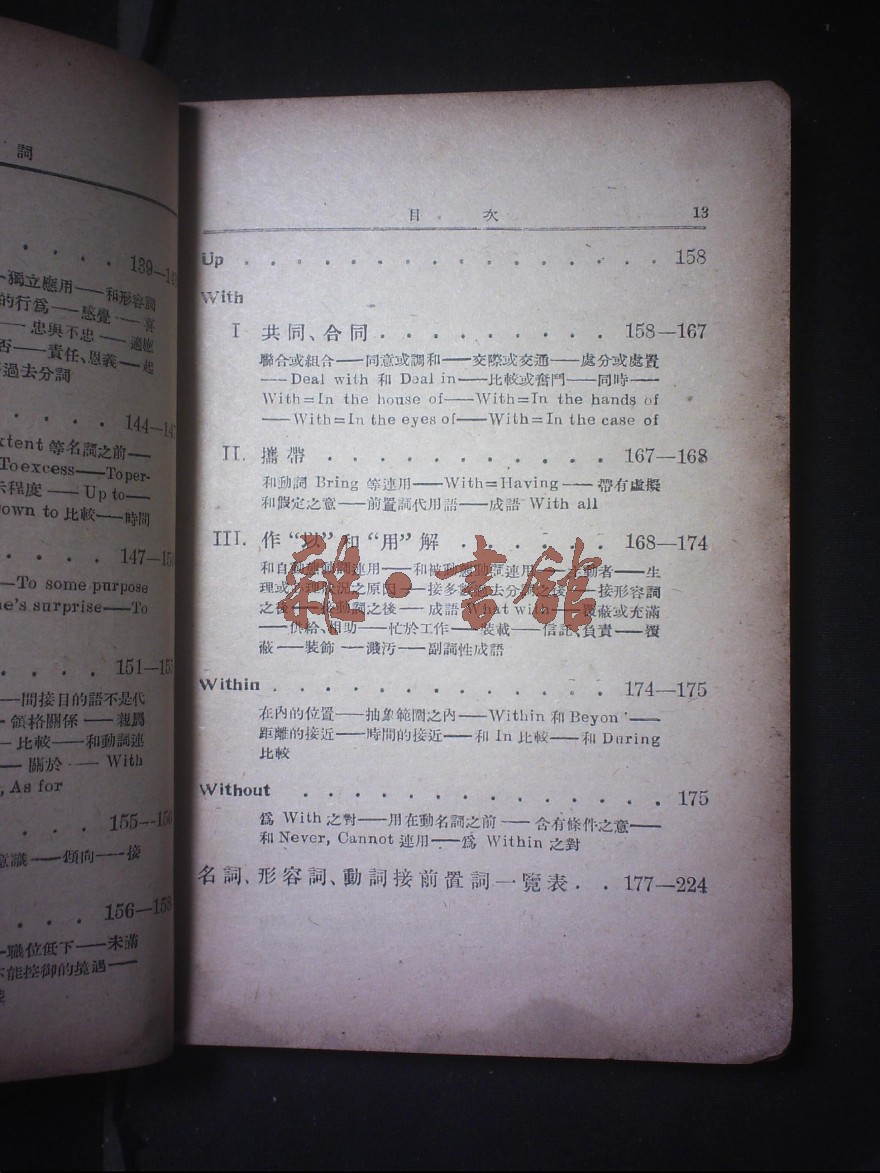 詞
139—14
獨立應用——和形容詞
的行爲——感覺——喜
——忠與不忠——適應
否——責任、恩義——起
過去分詞
144—14
xtent 等名詞之前——
To excess——To per-
示程度——Up to——
own to 比較——時間
147—15
—To some purpose
e's surprise——To
151—15
—間接目的語不是代
領格關係——親屬
—比較——和動詞連
—關於——With
, As for
155—156
意識——傾向——接
156—158
—職位低下——未滿
不能控御的境遇——
目 次 13
Up . . . . . . . . . . . . . . . . 158
With
I 共同、合同 . . . . . . . . . . 158—167
聯合或組合——同意或調和——交際或交通——處分或處置
——Deal with 和 Deal in——比較或奮鬥——同時——
With=In the house of——With=In the hands of
——With=In the eyes of——With=In the case of
II. 攜帶 . . . . . . . . . . . . 167—168
和動詞 Bring 等連用——With=Having——帶有虛擬
和假定之意——前置詞代用語——成語 With all
III. 作“以”和“用”解 . . . . . . . 168—174
和自動 動詞連用——和被動 動詞連用—— 動者——生
理或心理狀況之原因——接多數過去分詞之後——接形容詞
之後——接動詞之後——成語 What with——覆蔽或充滿
——供給、相助——忙於工作——裝載——信託、負責——覆
蔽——裝飾——濺污——副詞性成語
Within . . . . . . . . . . . . . 174—175
在內的位置——抽象範圍之內——Within 和 Beyon ——
距離的接近——時間的接近——和 In 比較——和 During
比較
Without . . . . . . . . . . . . . 175
爲 With 之對——用在動名詞之前——含有條件之意——
和 Never, Cannot 連用——爲 Within 之對
名詞、形容詞、動詞接前置詞一覽表 . . 177—224
雜·書館